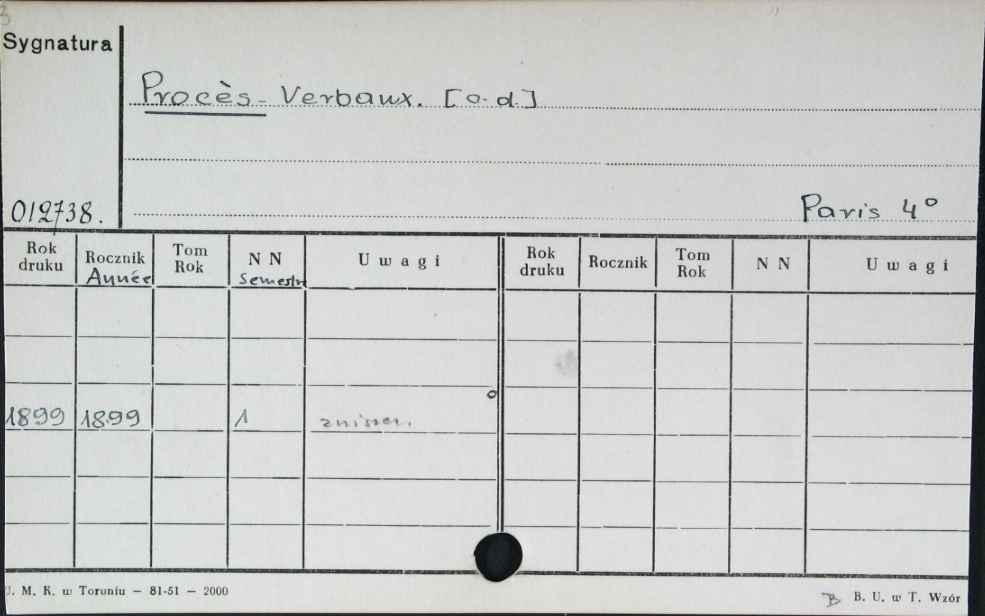 Sygnatura
Procès-Verbaux. [o.d.]
012738.
Paris 4°
Rok druku Rocznik Tom Rok N N Uwagi Rok druku Rocznik Tom Rok N N Uwagi
Année Semestre
1899 1899 1
U. M. K. w Toruniu — 81-51 — 2000
B. U. w T. Wzór